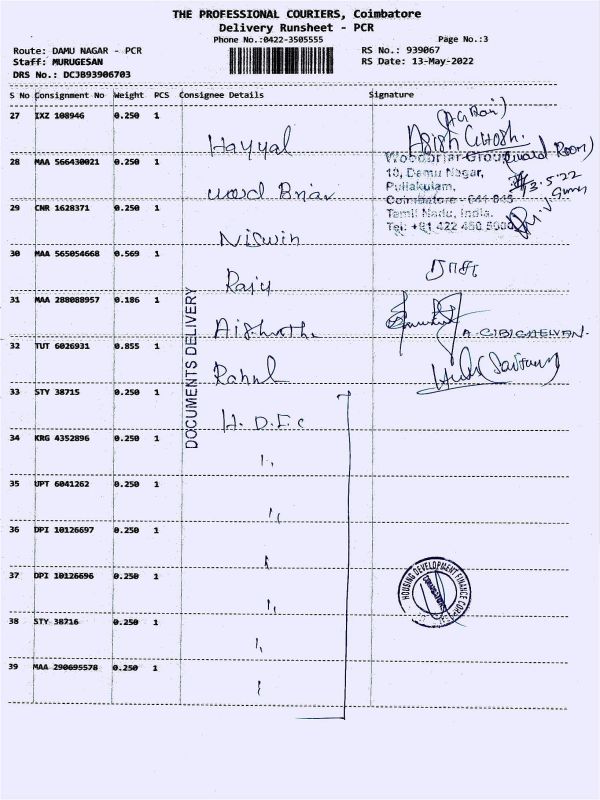 THE PROFESSIONAL COURIERS, Coimbatore
Delivery Runsheet - PCR
Phone No.:0422-3505555
Page No.:3
Route: DAMU NAGAR - PCR
RS No.: 939067
Staff: MURUGESAN
RS Date: 13-May-2022
DRS No.: DCJB93906703
S No Consignment No Weight PCS Consignee Details Signature
27 IXZ 108946 0.250 1
Hayyal
(A.G.Rai)
Asish Ghosh.
28 MAA 566430021 0.250 1
wood Briar
Woodbriar Group
10, Damu Nagar,
Puliakulam,
Coimbatore - 641 045
Tamil Nadu, India.
29 CNR 1628371 0.250 1
Niswin
30 MAA 565054668 0.569 1
Raju
ராஜு
31 MAA 288088957 0.186 1
A. CIBICHELVAN.
32 TUT 6026931 0.855 1
Rahul
DOCUMENTS DELIVERY
33 STY 38715 0.250 1
H.D.F.C
34 KRG 4352896 0.250 1
35 UPT 6041262 0.250 1
36 DPI 10126697 0.250 1
37 DPI 10126696 0.250 1
HOUSING DEVELOPMENT FINANCE CORP
38 STY 38716 0.250 1
39 MAA 290695578 0.250 1